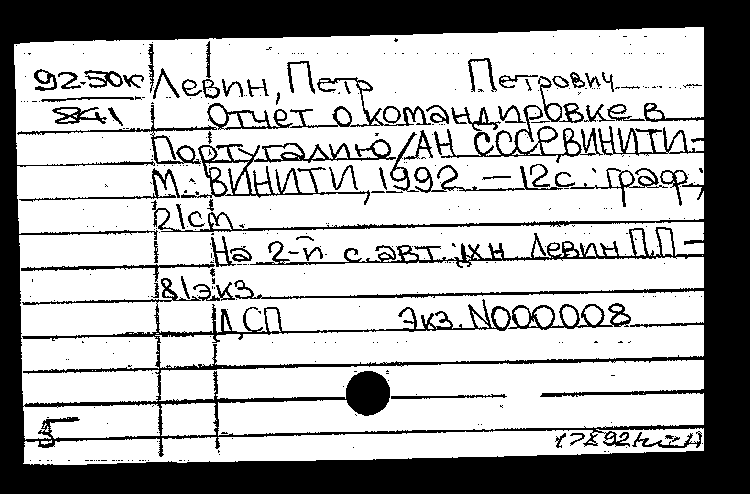 92-50к Левин, Петр Петрович
841 Отчет о командировке в
Португалию/АН СССР, ВИНИТИ.-
М.: ВИНИТИ, 1992. — 12с.: граф.;
21cm.
На 2-й с. авт.: Левин П.П —
81экз.
ДСП Экз. N000008
5